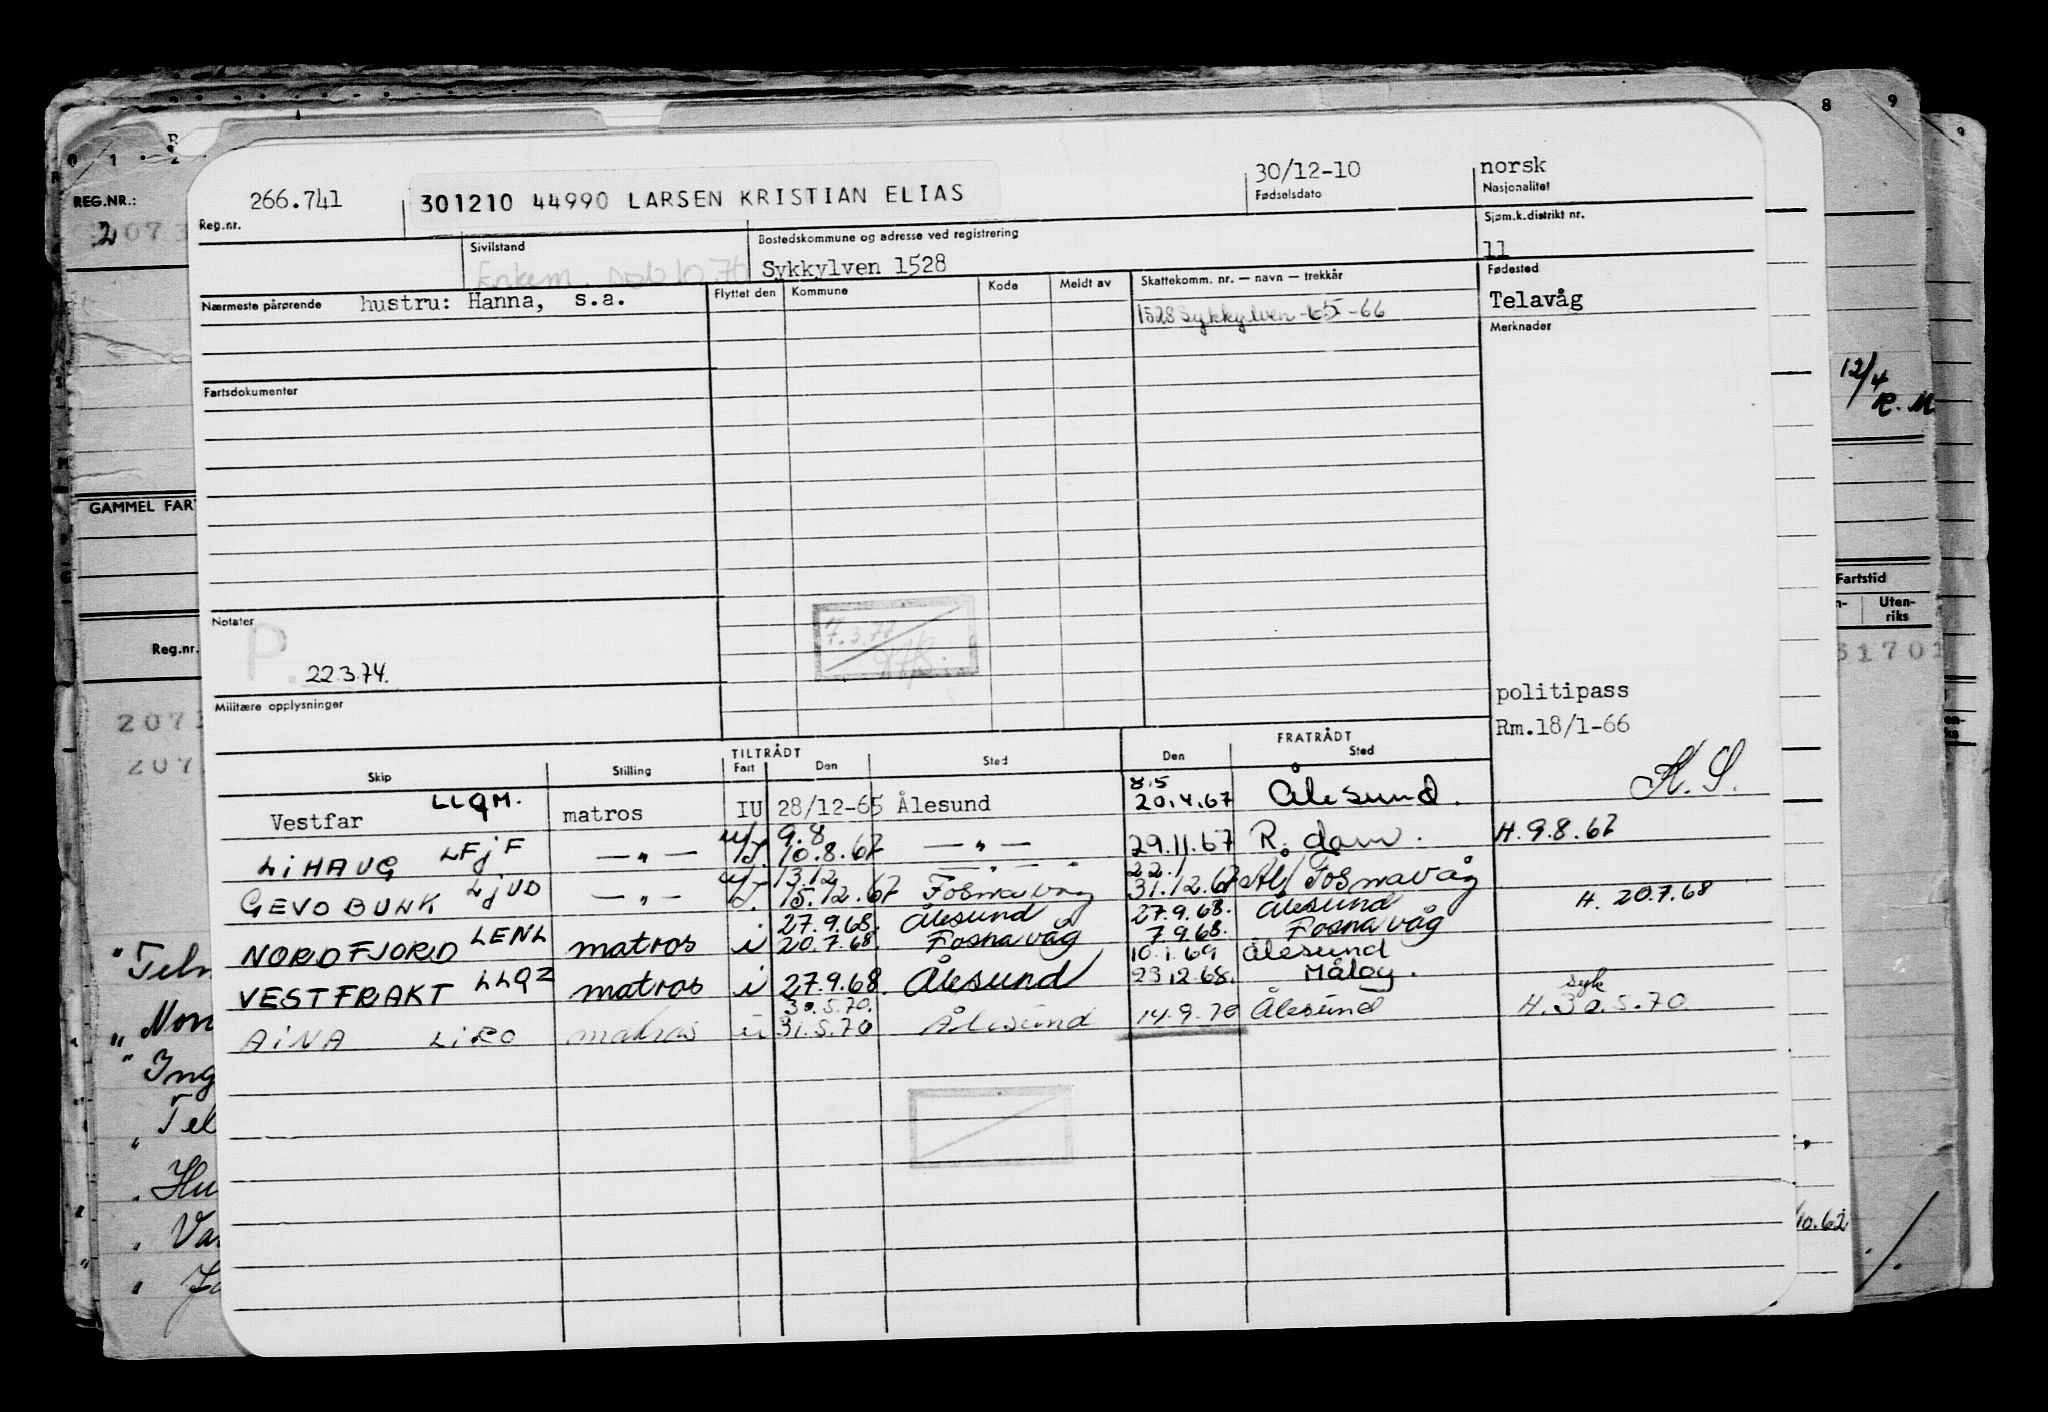 266.741 301210 44990 LARSEN KRISTIAN ELIAS 30/12-10 norsk
Reg.nr. Fødselsdato Nasjonalitet
Sivilstand Bostedskommune og adresse ved registrering Sjøm.k.distrikt nr.
Sykkylven 1528 11
Nærmeste pårørende hustru: Hanna, s.a. Flyttet den Kommune Kode Meldt av Skattekomm. nr. — navn — trekkår Fødested
1528 Sykkylven -65-66 Telavåg
Merknader
Fartsdokumenter
Notater
P. 22.3.74.
Militære opplysninger
politipass
Rm.18/1-66
TILTRÅDT FRATRÅDT
Skip Stilling Fart Den Sted Den Sted
K.S.
Vestfar LLQM. matros IU 28/12-65 Ålesund 8.5 20.4.67 Ålesund.
LIHAUG LFJF —„— U/I 9.8 10.8.67 —„— 29.11.67 R.dam. H.9.8.67
GEVOBUNK LJUD —„— U/I. 13.12 15.12.67 Fosnavåg 22.1 31.12.67 Ål/Fosnavåg
NORDFJORD LENL matros i 27.9.68. 20.7.68. Ålesund Fosnavåg 27.9.68. 7.9.68. Ålesund Fosnavåg H. 20.7.68
VESTFRAKT LLQZ matros i 27.9.68. Ålesund 10.1.69 23.12.68. Ålesund Måløy.
AINA LIRO matros 30.5.70. 31.5.70 Ålesund 14.9.70 Ålesund syk H.30.5.70.
REG.NR.:
GAMMEL FAR
Reg.nr.
2073
12/4
R.M
8 9
Fartstid
Uten-
riks
31701
10.62